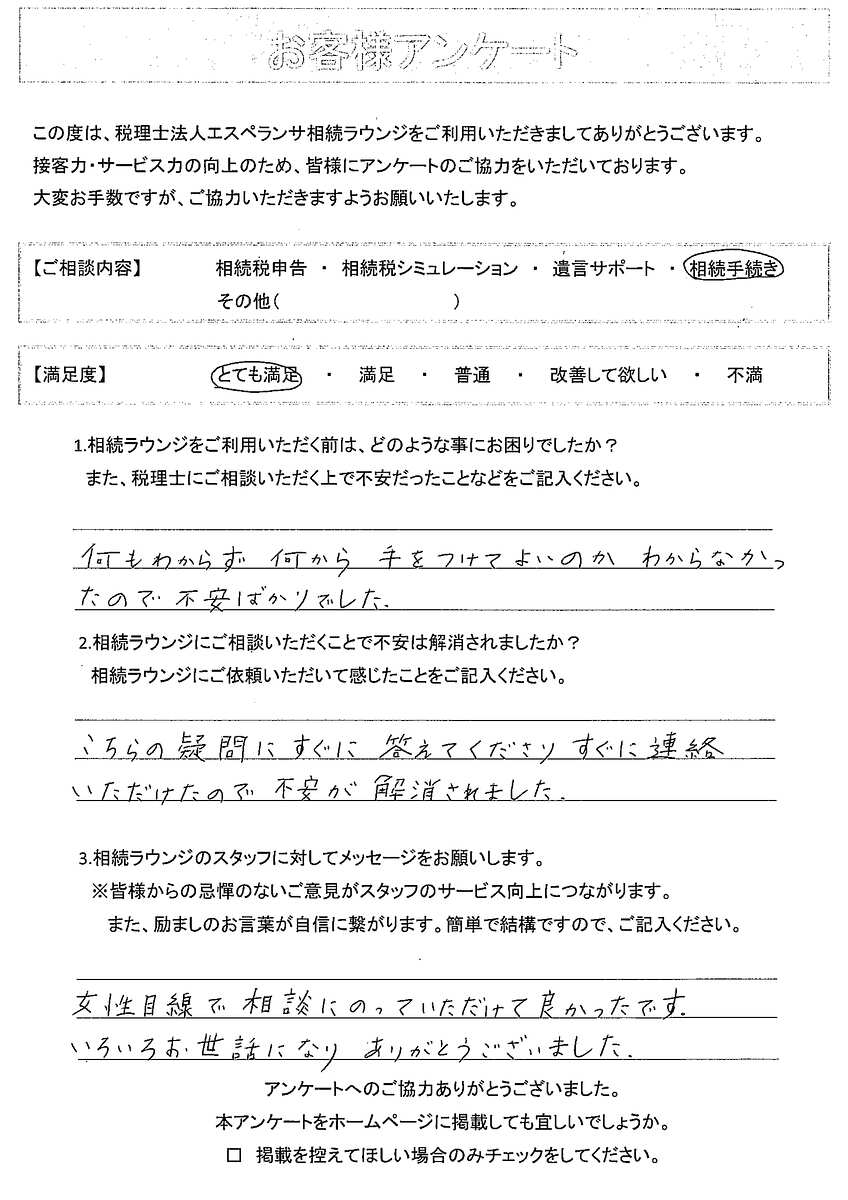 お客様アンケート
この度は、税理士法人エスペランサ相続ラウンジをご利用いただきましてありがとうございます。
接客力・サービス力の向上のため、皆様にアンケートのご協力をいただいております。
大変お手数ですが、ご協力いただきますようお願いいたします。
【ご相談内容】 相続税申告 ・ 相続税シミュレーション ・ 遺言サポート ・ 相続手続き
その他( )
【満足度】 とても満足 ・ 満足 ・ 普通 ・ 改善して欲しい ・ 不満
1.相続ラウンジをご利用いただく前は、どのような事にお困りでしたか？
また、税理士にご相談いただく上で不安だったことなどをご記入ください。
何もわからず 何から 手をつけてよいのか わからなかっ
たので 不安ばかりでした.
2.相続ラウンジにご相談いただくことで不安は解消されましたか？
相続ラウンジにご依頼いただいて感じたことをご記入ください。
こちらの疑問に すぐに 答えてくださり すぐに連絡
いただけたので 不安が 解消されました.
3.相続ラウンジのスタッフに対してメッセージをお願いします。
※皆様からの忌憚のないご意見がスタッフのサービス向上につながります。
また、励ましのお言葉が自信に繋がります。簡単で結構ですので、ご記入ください。
女性目線で 相談にのっていただけて良かったです.
いろいろお世話になり ありがとうございました.
アンケートへのご協力ありがとうございました。
本アンケートをホームページに掲載しても宜しいでしょうか。
□ 掲載を控えてほしい場合のみチェックをしてください。